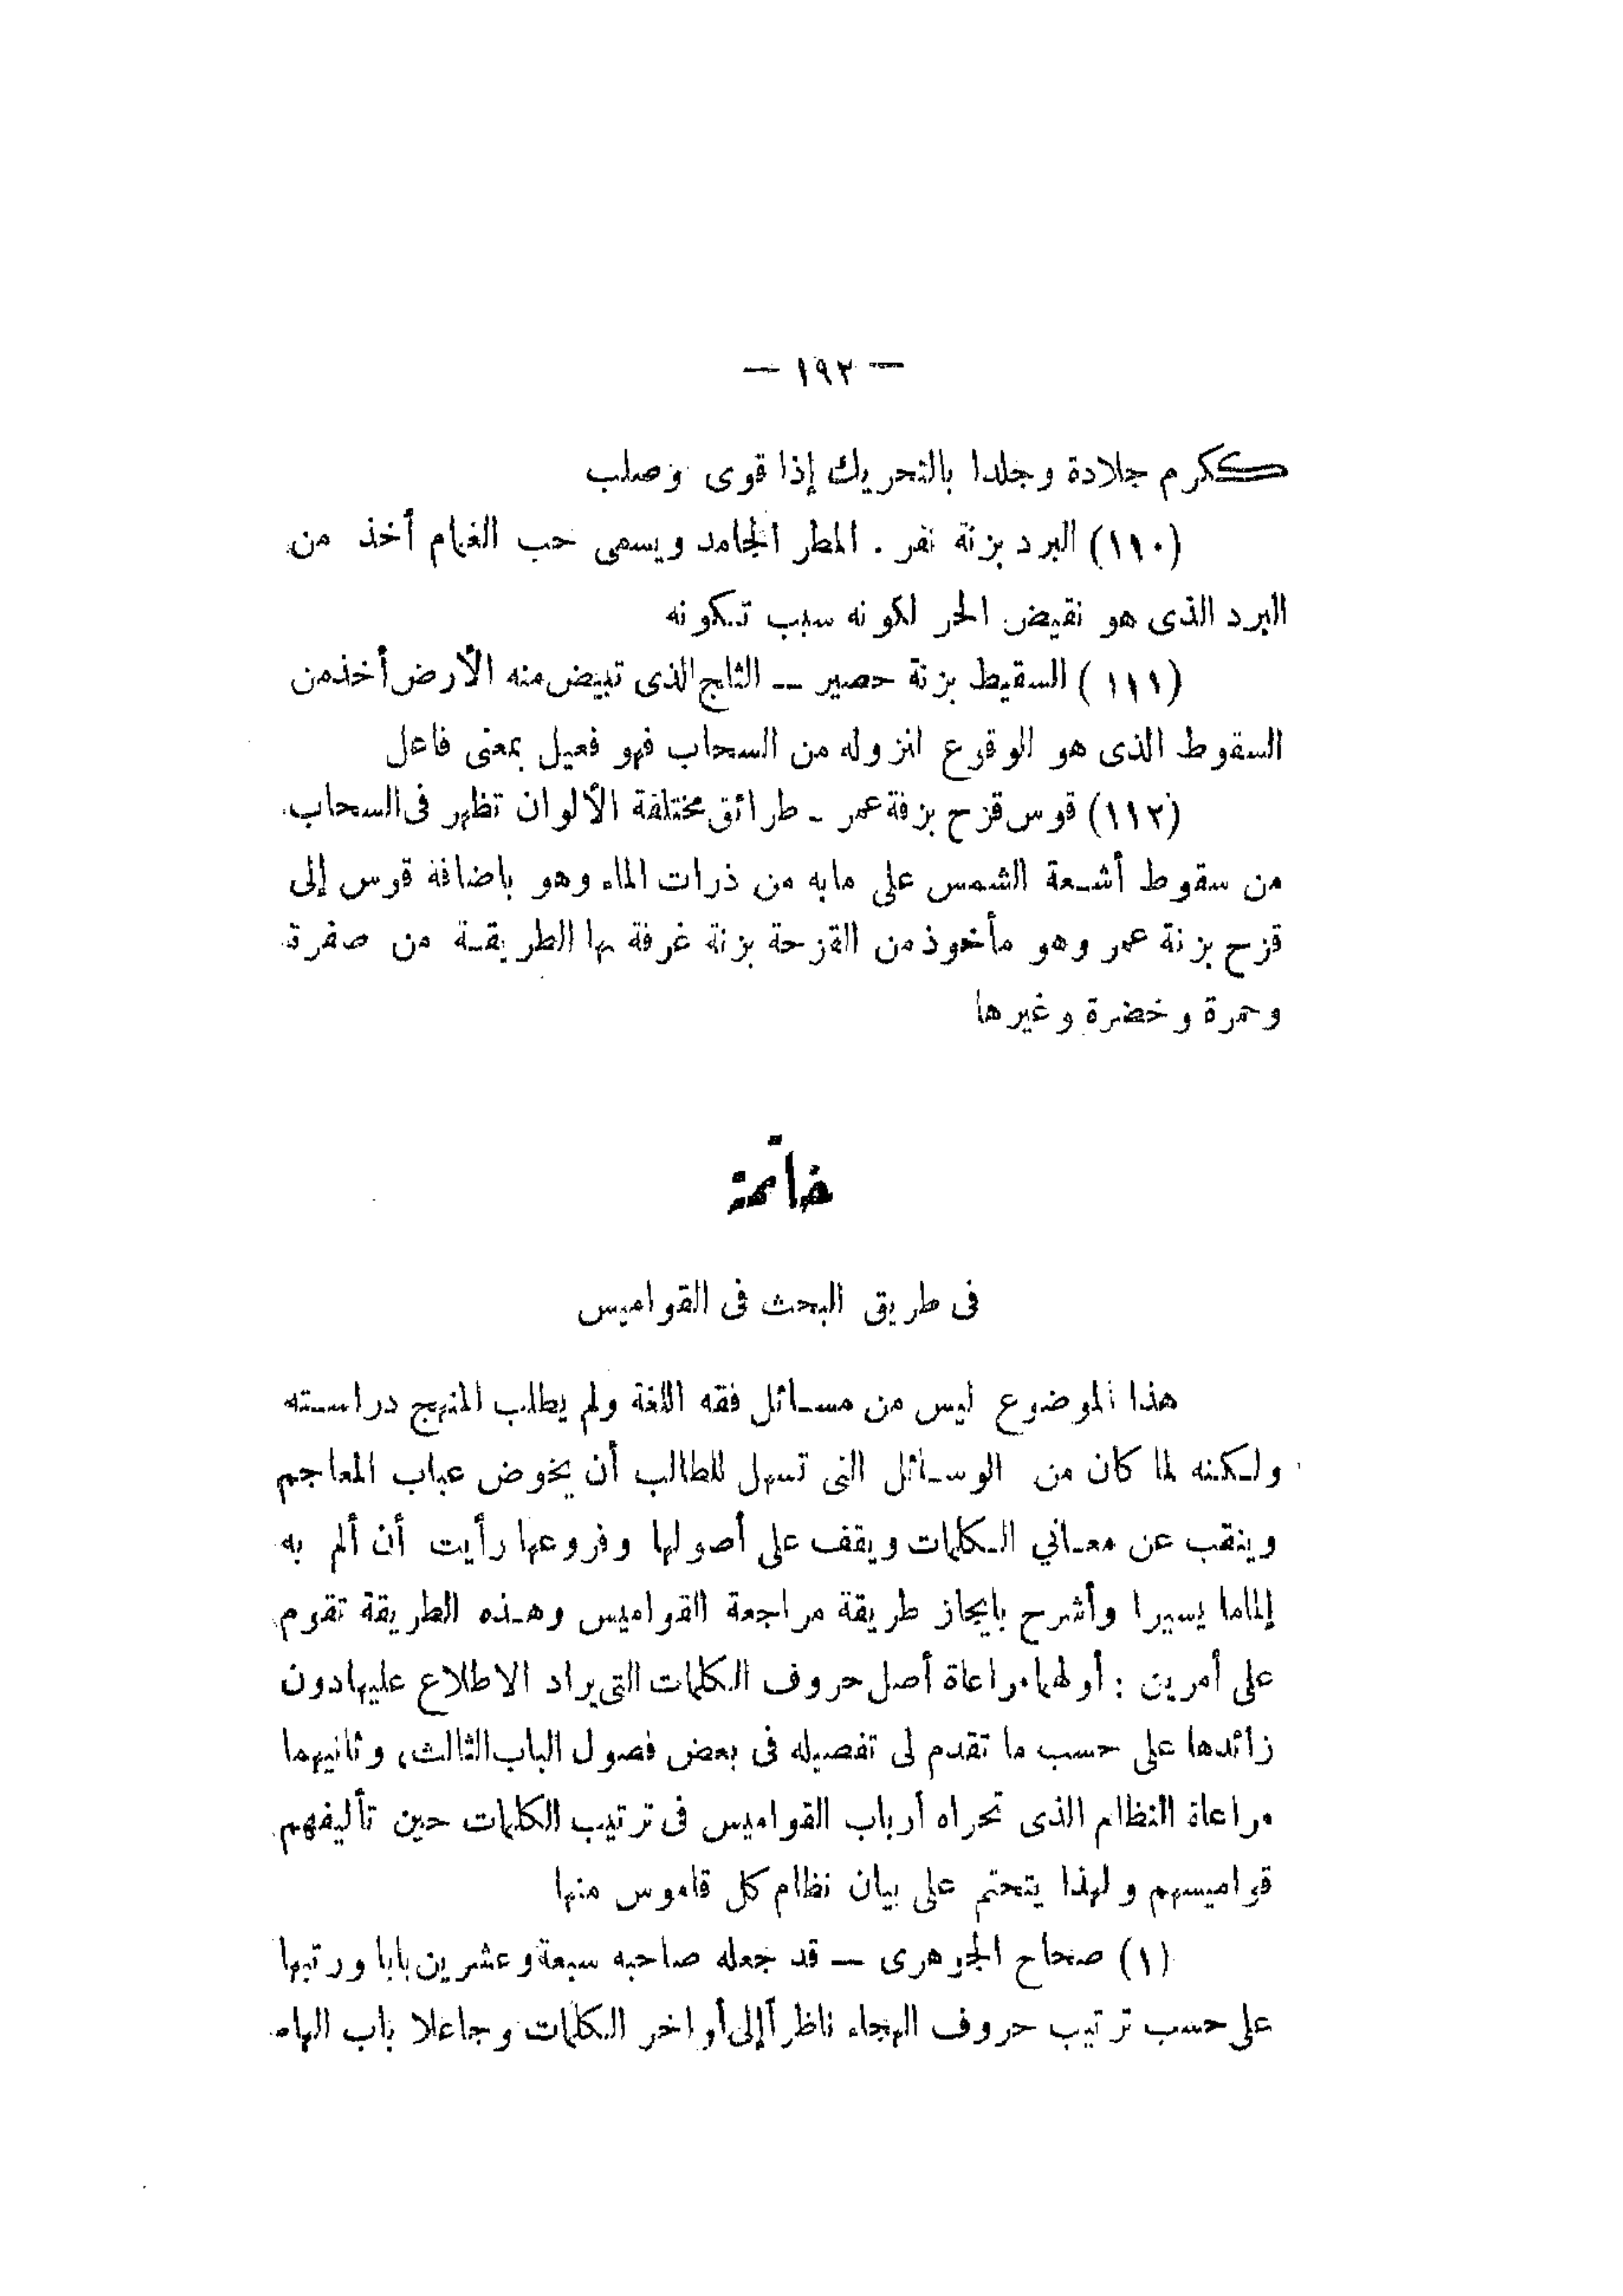 — ١٩٢ —
ككرم جلادة وجلدا بالتحريك إذا قوى وصلب
(١١٠) البرد بزنة نفر . المطر الجامد ويسمى حب الغمام أخذ من
البرد الذى هو نقيض الحر لكونه سبب تكونه
(١١١) السقيط بزنة حصير — الثلج الذى تبيض منه الأرض أخذ من
السقوط الذى هو الوقوع لنزوله من السحاب فهو فعيل بمعنى فاعل
(١١٢) قوس قزح بزنة عمر - طرائق مختلفة الألوان تظهر فى السحاب
من سقوط أشعة الشمس على مابه من ذرات الماء وهو باضافة قوس إلى
قزح بزنة عمر وهو مأخوذ من القزحة بزنة غرفة بها الطريقة من صفرة
وحمرة وخضرة وغيرها
خاتمة
فى طريق البحث فى القواميس
هذا الموضوع ليس من مسائل فقه اللغة ولم يطلب المنهج دراسته
ولكنه لما كان من الوسائل التى تسهل للطالب أن يخوض عباب المعاجم
وينقب عن معانى الكلمات ويقف على أصولها وفروعها رأيت أن ألم به
إلماما يسيرا وأشرح بايجاز طريقة مراجعة القواميس وهذه الطريقة تقوم
على أمرين : أولهما مراعاة أصل حروف الكلمات التى يراد الاطلاع عليها دون
زائدها على حسب ما تقدم لى تفصيله فى بعض فصول الباب الثالث، وثانيهما
مراعاة النظام الذى تحراه أرباب القواميس فى ترتيب الكلمات حين تأليفهم
قواميسهم ولهذا يتحتم على بيان نظام كل قاموس منها
(١) صحاح الجوهرى — قد جعله صاحبه سبعة وعشرين بابا ورتبها
على حسب ترتيب حروف الهجاء ناظراً إلى أواخر الكلمات وجاعلا باب الهاء